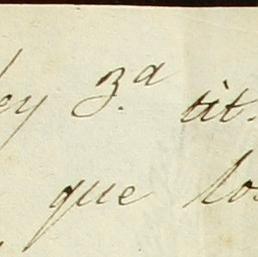 ley 3.ª tit.
que los